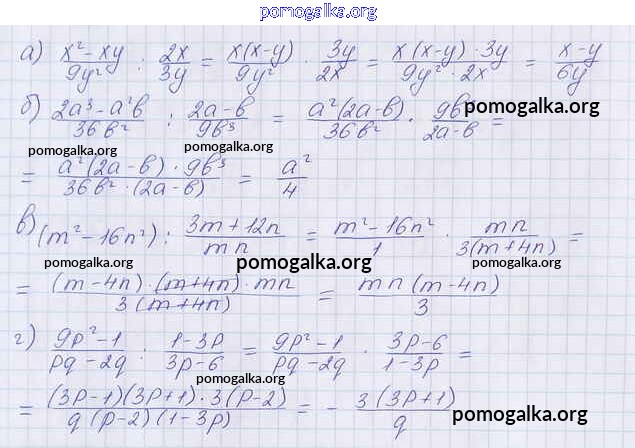 pomogalka.org
а) (x² - xy)/(9y²) : 2x/3y = x(x-y)/(9y²) · 3y/2x = (x(x-y)·3y)/(9y²·2x) = (x-y)/6y
б) (2a³ - a²b)/(36b²) : (2a-b)/(9b³) = a²(2a-b)/(36b²) · 9b/(2a-b) =
pomogalka.org
pomogalka.org pomogalka.org
= (a²(2a-b)·9b³)/(36b²·(2a-b)) = a²/4
в) (m²-16n²) : (3m+12n)/(mn) = (m²-16n²)/1 · mn/(3(m+4n)) =
pomogalka.org pomogalka.org pomogalka.org
= ((m-4n)·(m+4n)·mn)/(3(m+4n)) = mn(m-4n)/3
г) (9p²-1)/(pq-2q) : (1-3p)/(3p-6) = (9p²-1)/(pq-2q) · (3p-6)/(1-3p) =
pomogalka.org
= ((3p-1)(3p+1)·3(p-2))/(q(p-2)(1-3p)) = - 3(3p+1)/q
pomogalka.org